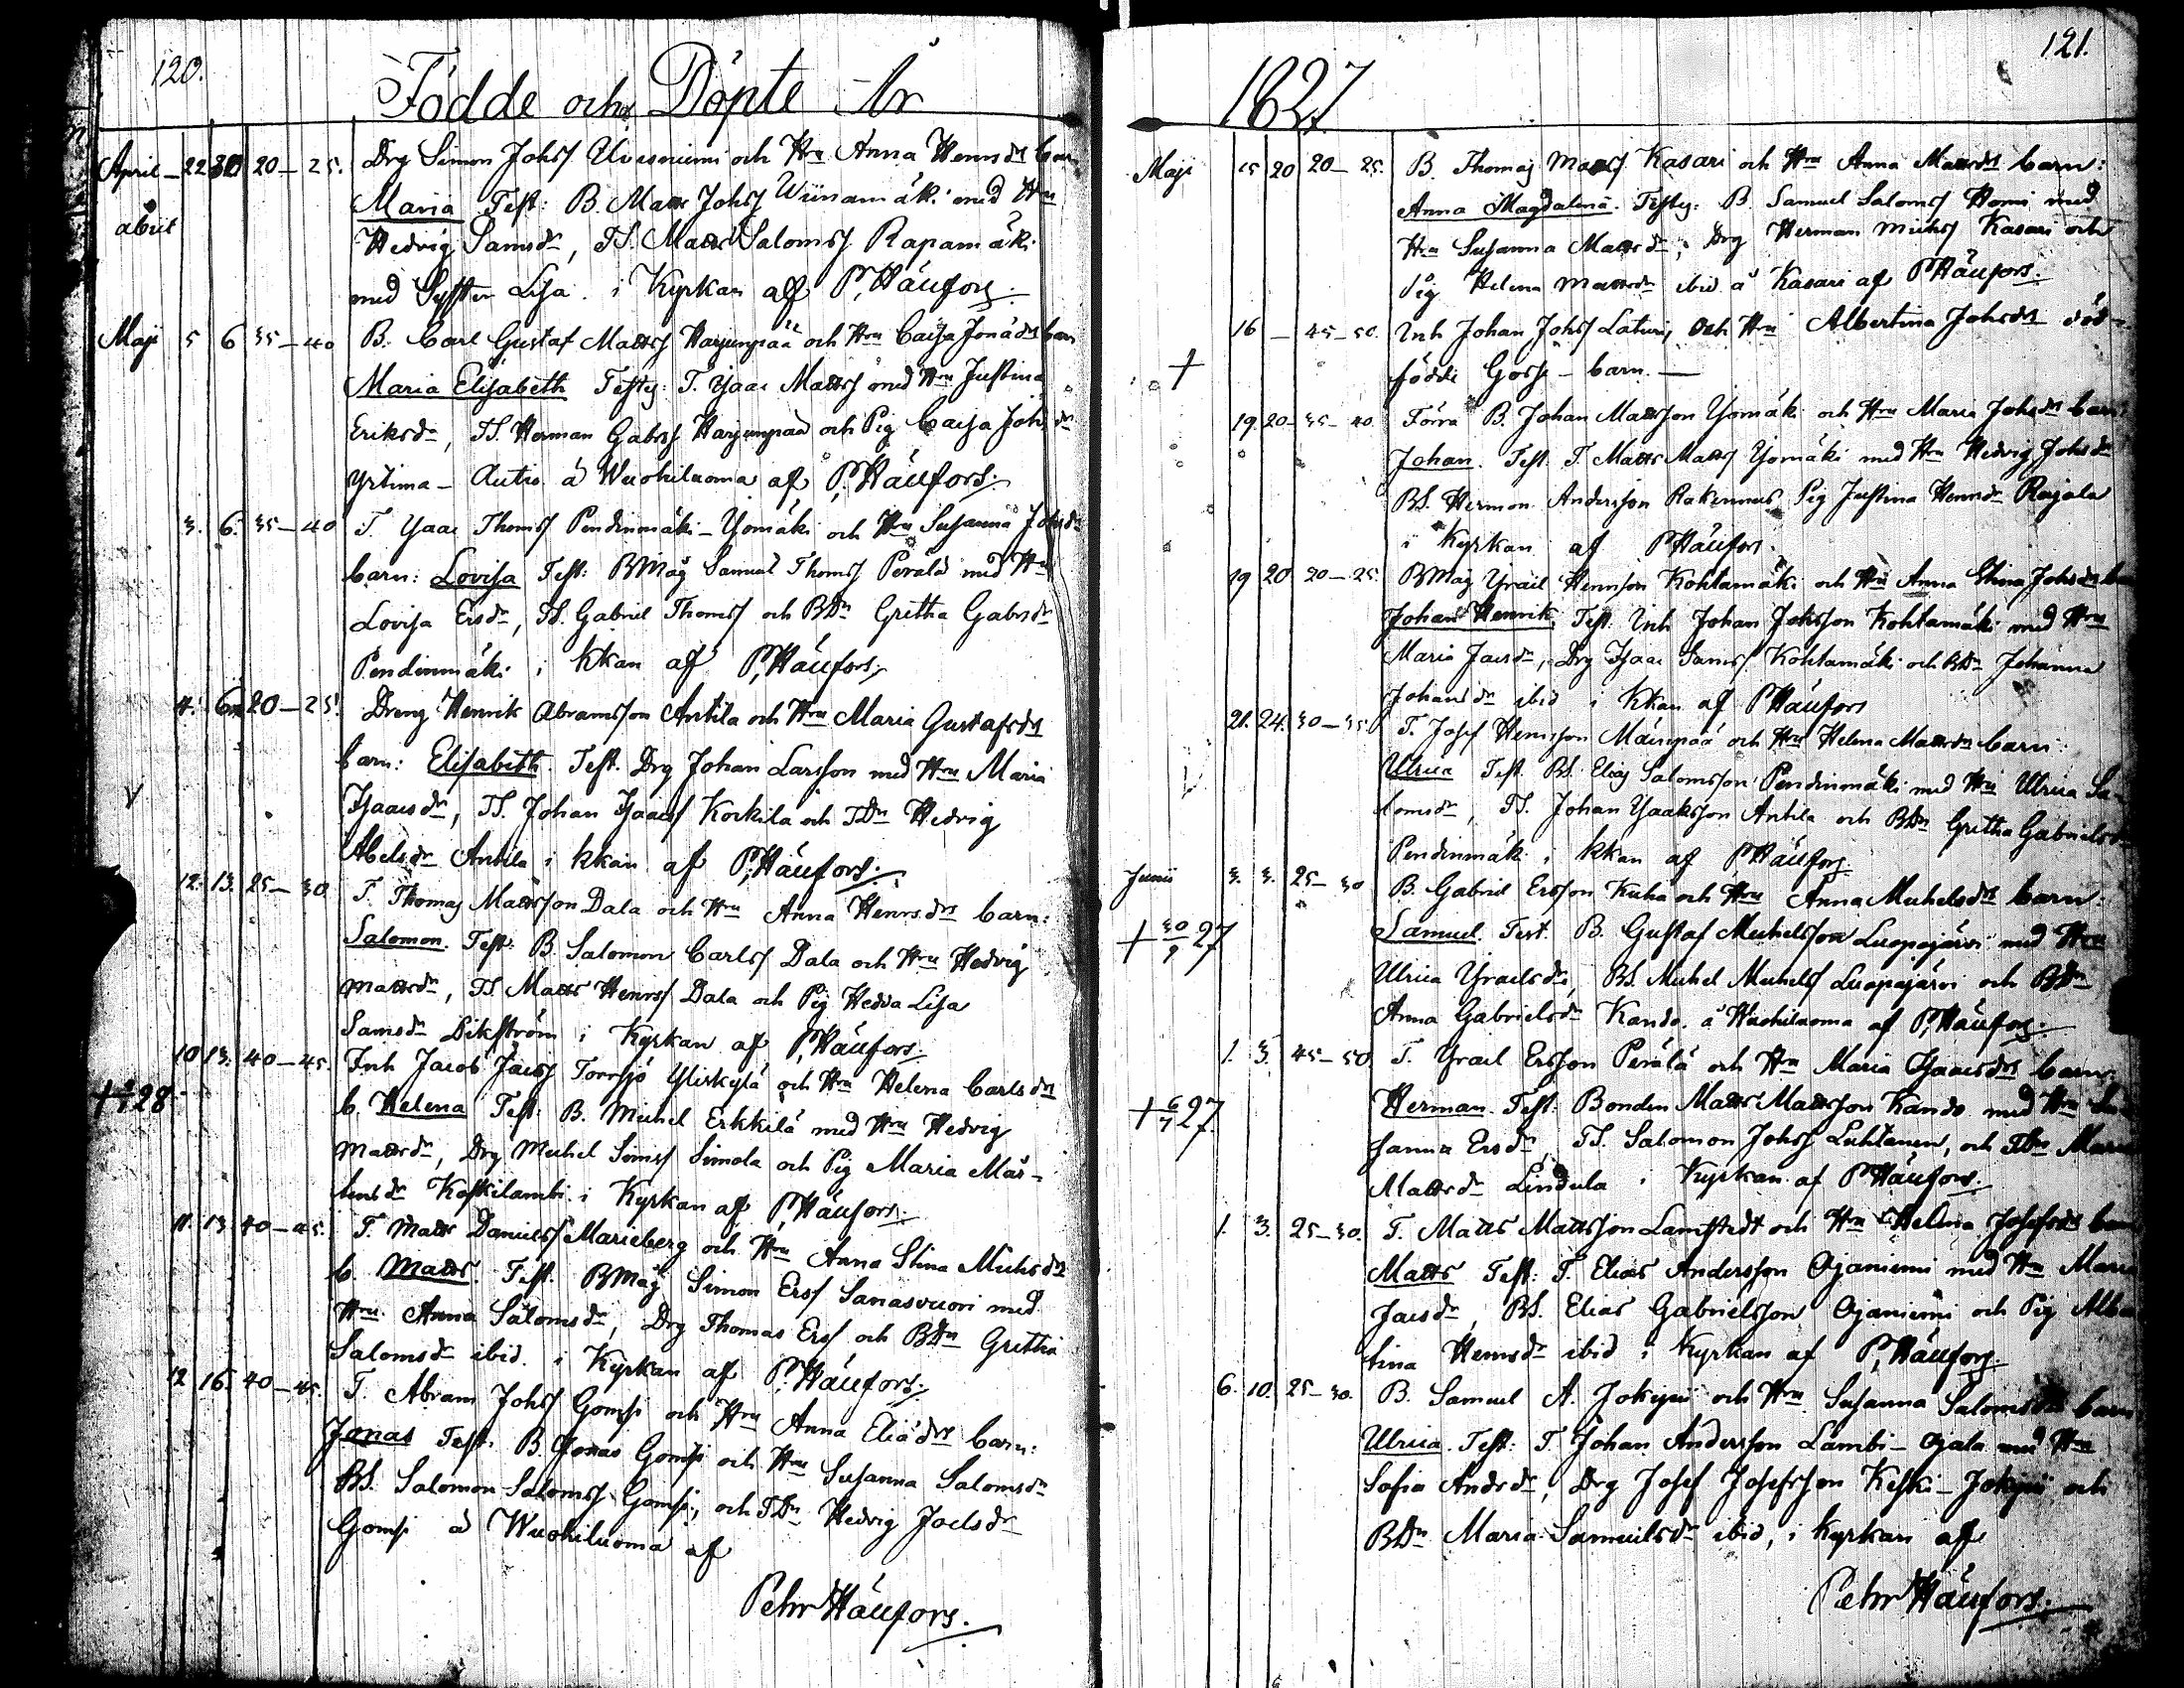 120.
Födde och Döpte År
April 22 30 20-25. Drg Simon Johsf Uiesniemi och Hru Anna Henrsdrs barn
Maria Test: B. Matts Johsf Wiinamäki med Hru
abiit Hedvig Samsdr, TS. Matts Salomsf Rapamäki
med Syster Lisa i Kyrkan aff P. Häufors.
Maji 5 6 35-40 B. Carl Gustaf Mattsf Harjunpää och Hru Caisa Jonädrs barn
Maria Elisabeth Testes: T. Ysaac Mattsf med Hru Justina
Eriksdr, TS. Herman Gabrsf Harjunpää och Pig Caisa Johsdr
Yrtima-Autio å Wuohiluoma af P. Häufors.
3. 6. 35-40 T. Ysaac Thomsf Pendinmäki-Yomäki och Hru Susanna Johsdrs
barn: Lovisa Test: BMåg Samuel Thomsf Perälä med Hru
Lovisa Ersdr, TS. Gabriel Thomsf och BDr Gretha Gabrsdr
Pendinmäki i Kkan af P. Häufors.
4. 6 20-25. Dreng Henrik Abramsson Antila och Hru Maria Gustafsdrs
barn: Elisabeth. Test. Drg Johan Larsson med Hru Maria
Ysaacsdr, TS. Johan Ysaacsf Korkila och TDr Hedvig
Abelsdr Antila i kkan af P. Häufors.
12. 13. 25-30. T. Thomas Mattsson Dala och Hru Anna Henrsdrs barn:
Salomon. Test: B Salomon Carlsf Dala och Hru Hedvig
Mattsdr, TS Matts Henrsf Dala och Pig Hedda Lisa
Samsdr Dikström i Kyrkan af P. Häufors
10 13. 40-45. Inh Jacob Jacsf Torrsjö Yliskylä och Hru Helena Carlsdrs
28 b. Helena Test: B. Michel Erkkilä med Hru Hedvig
Mattsdr, Drg Michel Simsf Simola och Pig Maria Mår-
tensdr Koskilambi i Kyrkan af P. Häufors.
11. 13. 40-45. T. Matts Danielsf Marieberg och Hru Anna Stina Michsdrs
b. Matts. Test. BMåg Simon Ersf Sanasvuori med
Hru Anna Salomsdr, Drg Thomas Ersf och BDr Gretha
Salomsdr ibid. i Kyrkan af P. Häufors.
12 16. 40-45. T. Abram Johsf Gomsi och Hru Anna Eliædrs barn:
Jonas Test: B. Jonas Gomsi och Hru Susanna Salomsdr
BS. Salomon Salomsf Gomsi, och TDr Hedvig Joelsdr
Gomsi å Wuohiluoma af
Pehr Häufors.
121.
1827
Maji 15 20 20-25. B. Thomas Mattsf Kasari och Hru Anna Mattsdrs barn:
Anna Magdalena. Testes: B. Samuel Salomsf Homi med
Hru Susanna Mattsdr; Drg Herman Michsf Kasari och
Pig Helena Mattsdr ibid å Kasari af P Häufors.
16 - 45-50. Inh Johan Johsf Laturi, och Hru Albertina Johsdrs död-
+ födde Gosse-barn.
19. 20. 35-40. Förra B. Johan Mattsson Yomäki och Hru Maria Johsdrs barn:
Johan. Test. T. Matts Mattsf Yomäki med Hru Hedvig Johsdr
BS. Herman Andersson Rakennus Pig Justina Henrsdr Rajala
i Kyrkan af P Häufors.
19 20 20-25. BMåg Yrael Henrsson Kohtamäki och Hru Anna Stina Johsdrs barn
Johan Henrik Test. Inh Johan Johsson Kohtamäki med Hru
Maria Jacsdr, Drg Ysaac Samsf Kohtamäki och BDr Johanna
Johansdr ibid i Kkan af P Häufors
21. 24. 30-35. T. Josef Henrsson Mäenpää och Hru Helena Mattsdrs barn:
Ulrica Test. BS. Elias Salomsson Pendinmäki med Hru Ulrica Sa-
lomsdr, TS. Johan Ysaaksson Antila och BDr Gretha Gabrielsdr
Pendinmäki i kkan af P Häufors.
Junii 3. 3. 25-30 B. Gabriel Ersson Kuha och Hru Anna Michelsdrs barn:
+ 30/9 27 Samuel. Test. B. Gustaf Michelsson Luopajärvi med Hru
Ulrica Yraelsdr, BS. Michel Michelsf Luopajärvi och BDr
Anna Gabrielsdr Kando. å Wuohiluoma af P. Häufors.
1. 3. 45-50. T. Yrael Ersson Perälä och Hru Maria Ysaacsdrs barn:
+ 6/7 27. Herman. Test: Bonden Matts Mattsson Kando med Hru Su-
sanna Ersdr, TS. Salomon Johsf Luhtanen, och TDr Maria
Mattsdr Lindula i Kyrkan af P Häufors.
1. 3. 25-30. T. Matts Mattsson Lamstedt och Hru Helena Josefsdrs barn
Matts Test: T. Elias Andersson Ojaniemi med Hru Maria
Jacsdr, BS. Elias Gabrielsson Ojaniemi och Pig Alber
tina Henrsdr ibid i Kyrkan af P. Häufors.
6. 10. 25-30. B. Samuel A. Jokipii och Hru Susanna Salomsdrs barn
Ulrica. Test: T. Johan Andersson Lambi-Ojala med Hru
Sofia Andrsdr, Drg Josef Josefsson Keski-Jokipii och
BDr Maria Samuelsdr ibid, i Kyrkan aff
Pehr Häufors.